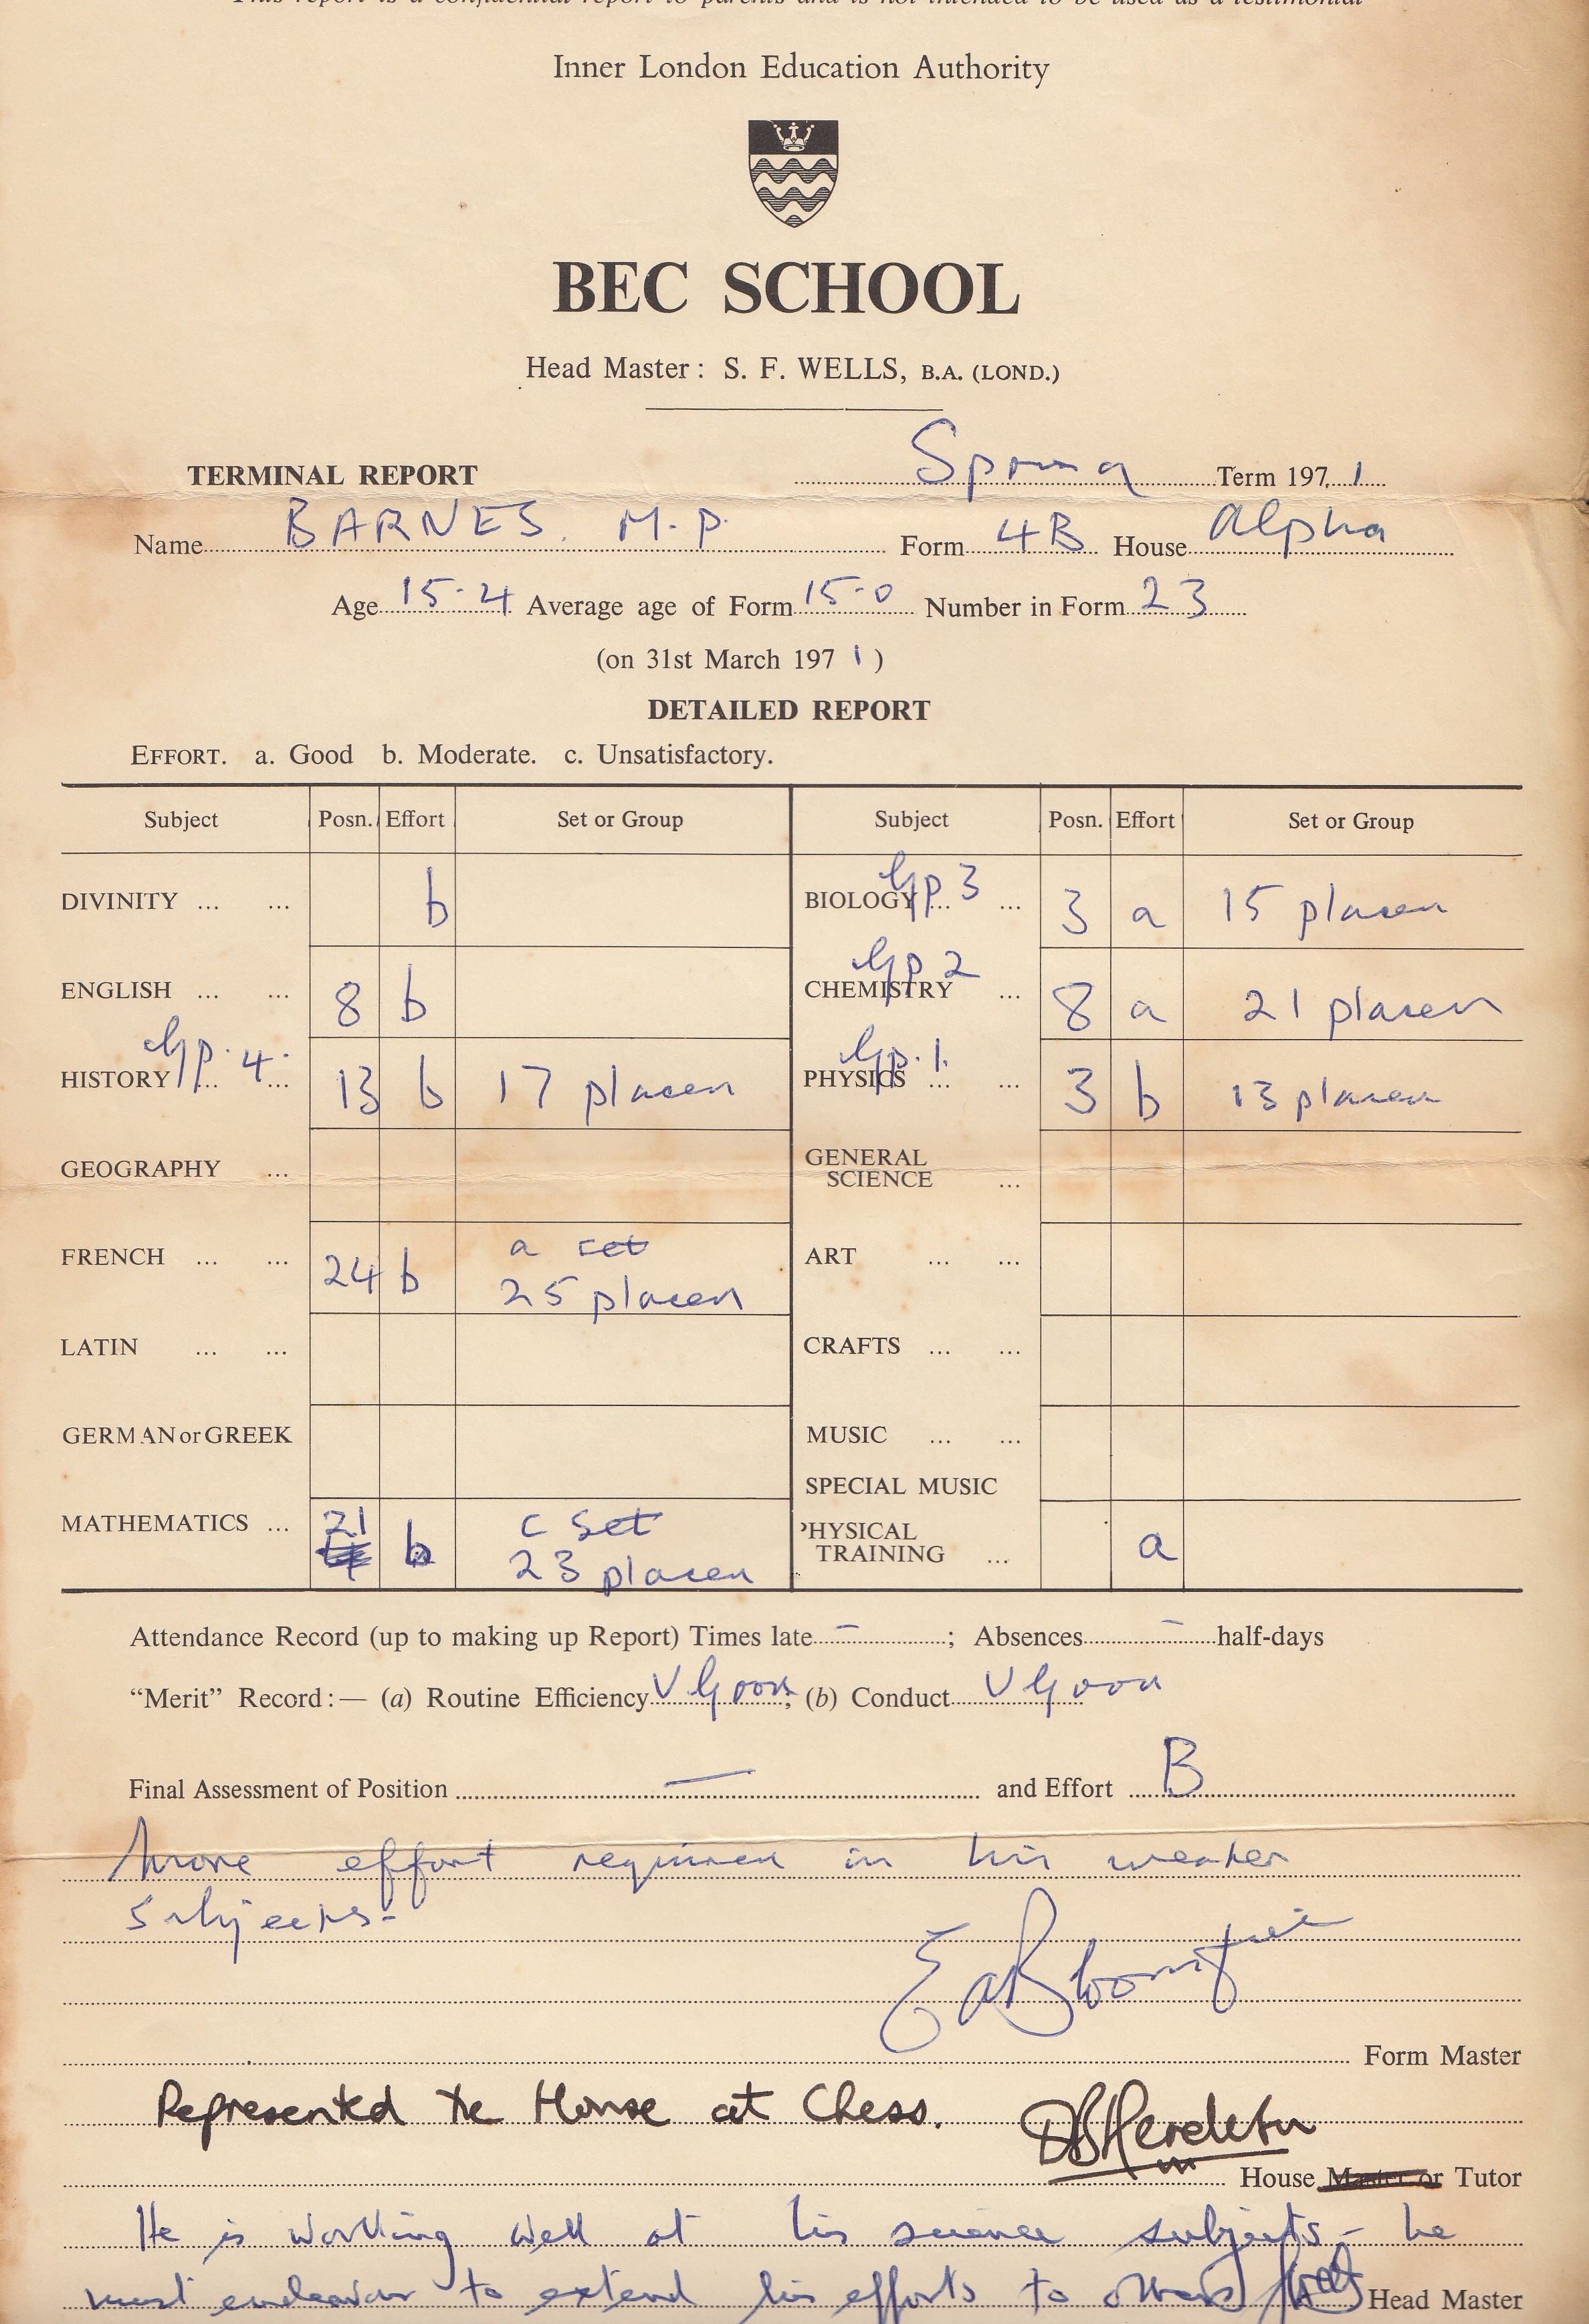 This report is a confidential report to parents and is not intended to be used as a testimonial
Inner London Education Authority
BEC SCHOOL
Head Master: S. F. WELLS, B.A. (LOND.)
TERMINAL REPORT Spring Term 1971
Name BARNES. M.P. Form 4B House Alpha
Age 15-4 Average age of Form 15-0 Number in Form 23
(on 31st March 1971)
DETAILED REPORT
EFFORT. a. Good b. Moderate. c. Unsatisfactory.
Subject Posn. Effort Set or Group Subject Posn. Effort Set or Group
DIVINITY ... ... b
ENGLISH ... ... 8 b
Gp. 4.
HISTORY ... ... 13 b 17 placed
GEOGRAPHY ...
FRENCH ... ... 24 b a set
25 placed
LATIN ... ...
GERMAN or GREEK
MATHEMATICS ... 21 b c set
23 placed
Gp 3
BIOLOGY ... ... 3 a 15 placed
Gp 2
CHEMISTRY ... 8 a 21 placed
Gp. 1.
PHYSICS ... ... 3 b 13 placed
GENERAL
SCIENCE ...
ART ... ...
CRAFTS ... ...
MUSIC ... ...
SPECIAL MUSIC
PHYSICAL
TRAINING ... a
Attendance Record (up to making up Report) Times late – ; Absences – half-days
"Merit" Record:— (a) Routine Efficiency V Good; (b) Conduct V Good
Final Assessment of Position — and Effort B
More effort required in his weaker
subjects-
E A
Form Master
Represented the House at Chess.
House Master or Tutor
He is working well at his science subjects – he
must endeavour to extend his efforts to others Head Master